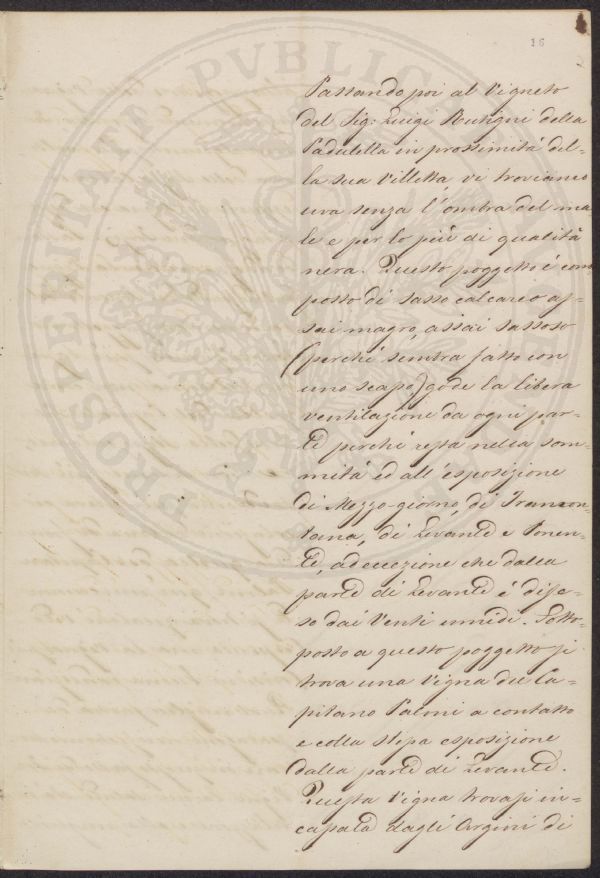 16
Passando poi al Vigneto
del Sig: Luigi Rutigni della
Padulella in prossimità del=
la sua Villetta, vi troviamo
uva senza l'ombra del ma=
le e per lo più di qualità
nera. Questo poggetto è com
posto di sasso calcareo as=
sai magro, assai sassoso
(perché sembra fatto con
uno scapo,) gode la libera
ventilazione da ogni par=
te perché resta nella som=
mità ed all'esposizione
di Mezzo-giorno, di Tramon=
tana, di Levante e Ponen=
te, ad eccezione che dalla
parte di Levante é dife=
so dai Venti umidi. Sotto=
posto a questo poggetto si
trova una Vigna del Ca=
pitano Paloni a contatto
e colla stessa esposizione
dalla parte di Levante.
Questa Vigna trovasi in=
casata dagli Argini di
PROSPERITATI PVBLICAE